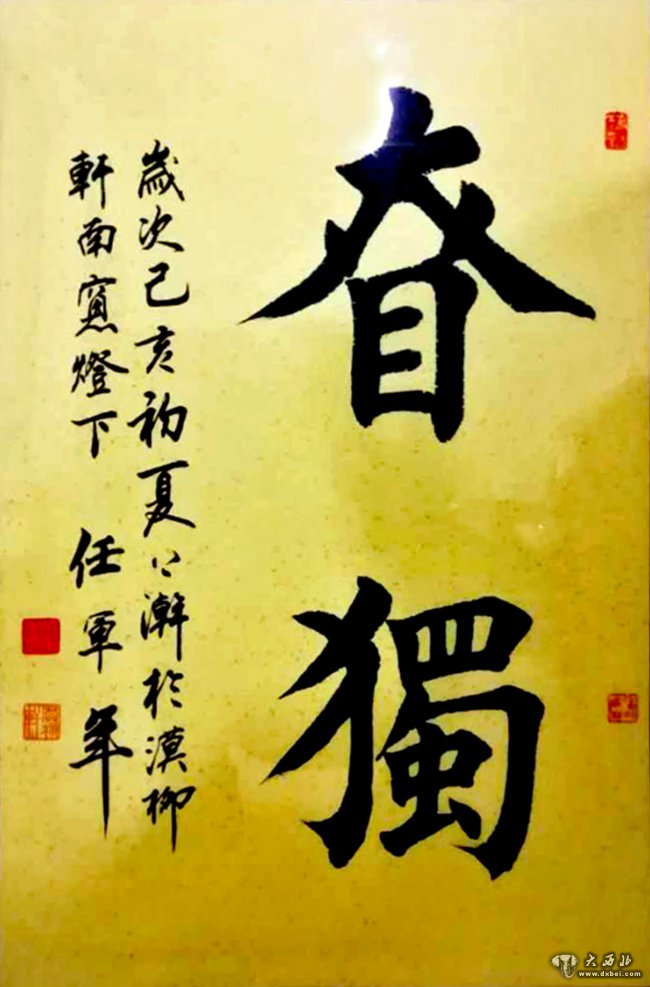 眘獨
歲次己亥初夏上澣於漠柳
軒南窻燈下 任軍年
大西北
www.dxbei.com